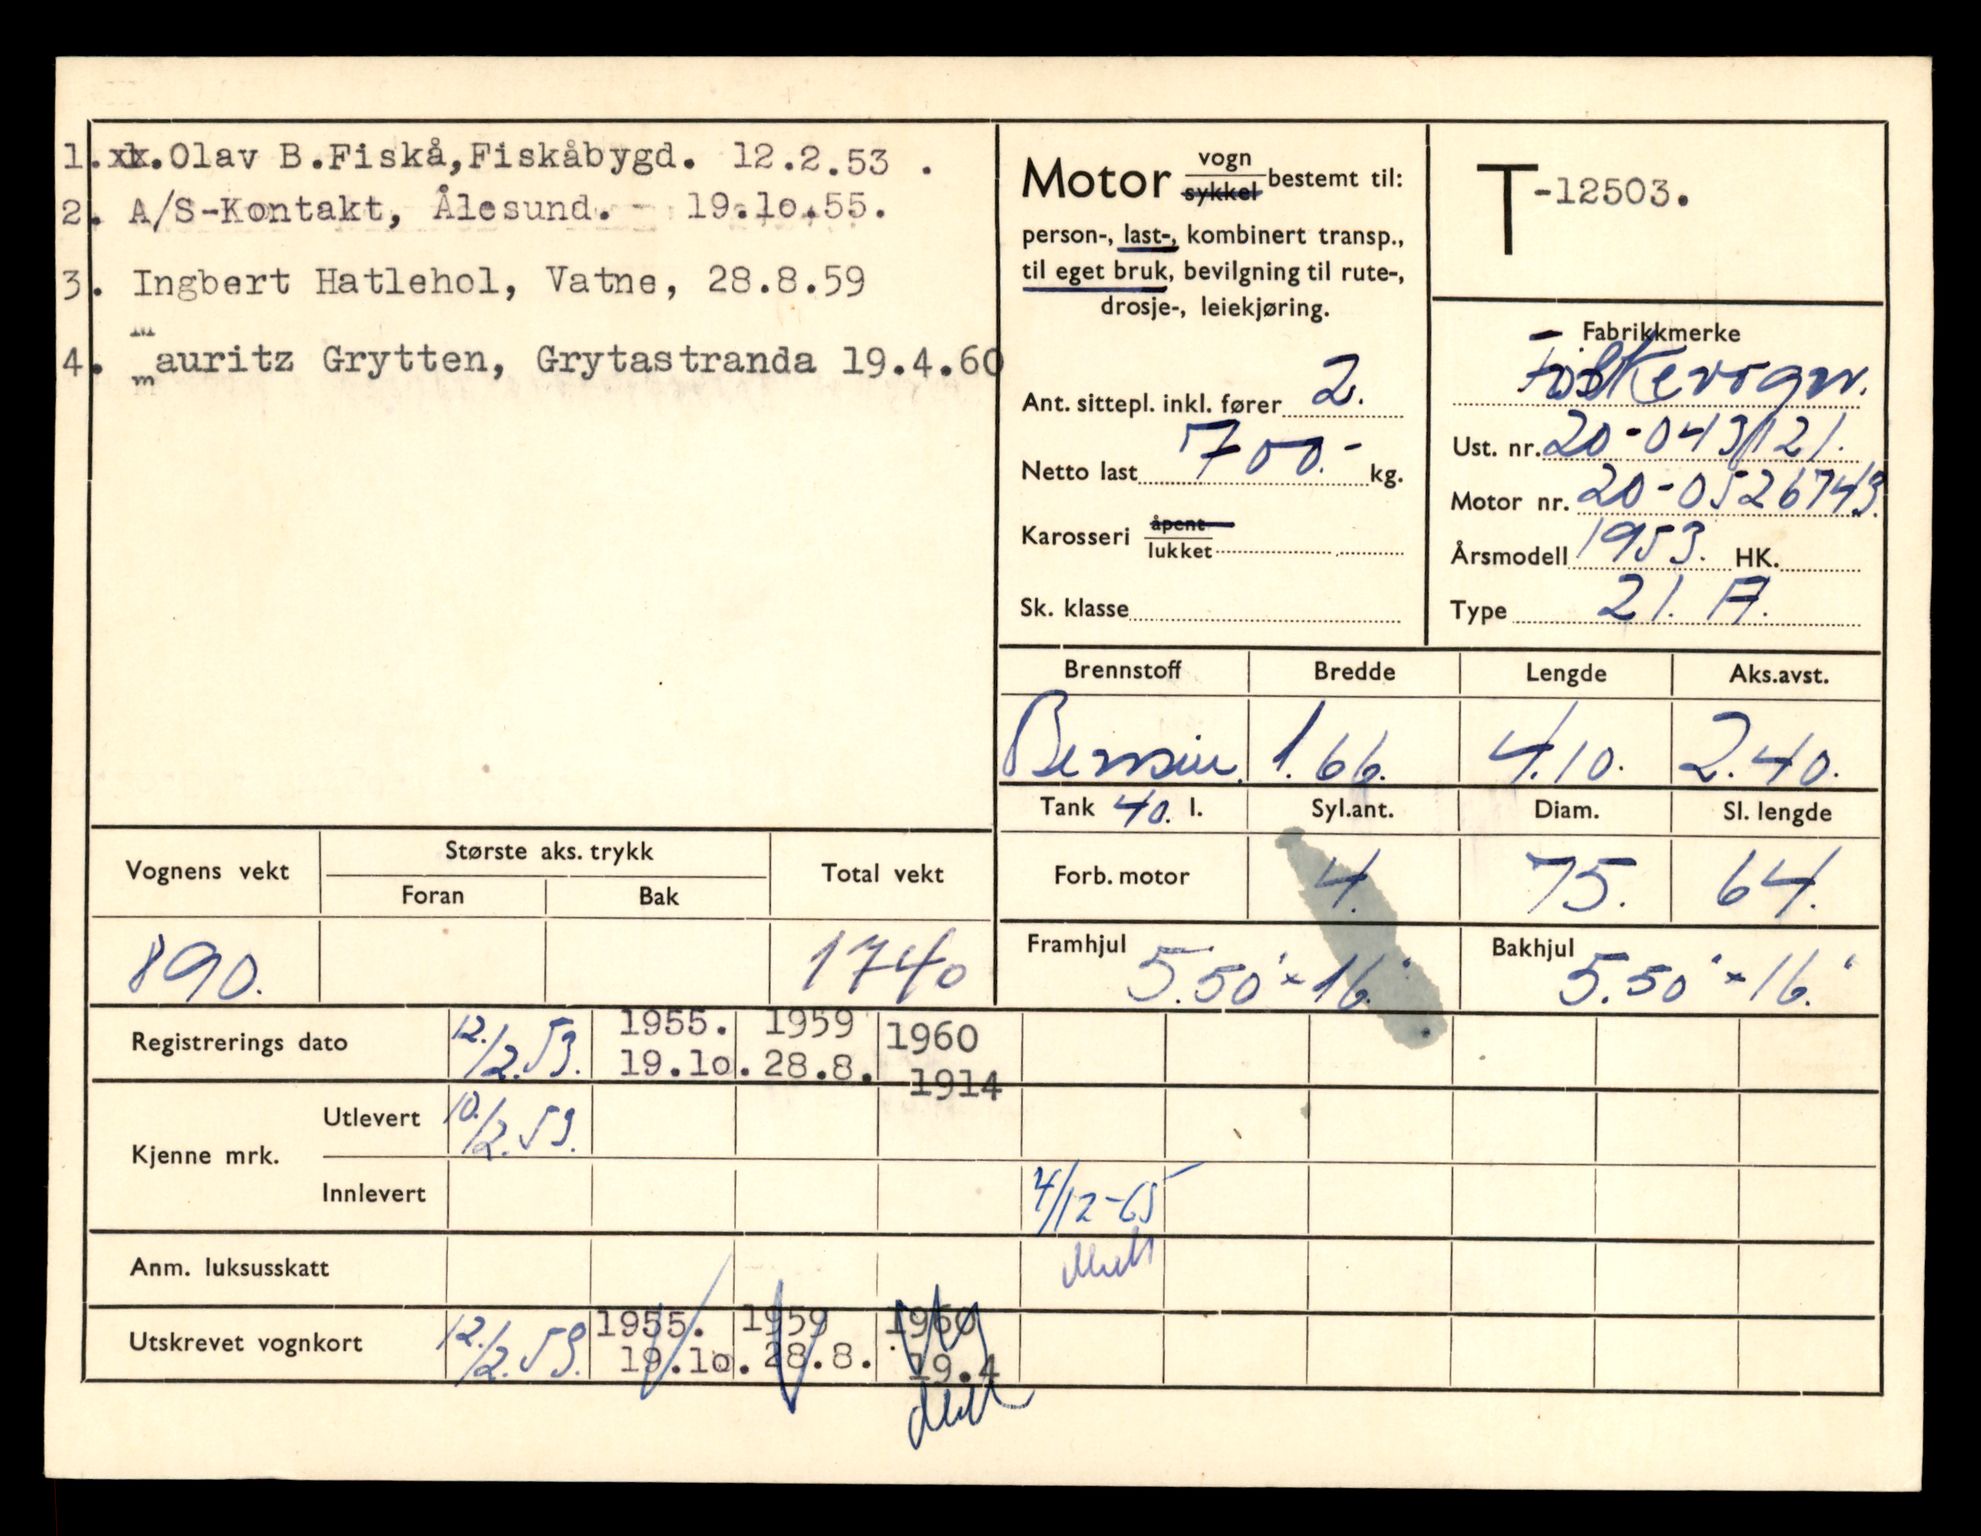 1.xx.Olav B.Fiskå,Fiskåbygd. 12.2.53 .
2. A/S-Kontakt, Ålesund. - 19.1o.55.
3. Ingbert Hatlehol, Vatne, 28.8.59
4. Mauritz Grytten, Grytastranda 19.4.60
Motor vogn sykkel bestemt til:
person-, last-, kombinert transp.,
til eget bruk, bevilgning til rute-,
drosje-, leiekjøring.
Ant. sittepl. inkl. fører 2.
Netto last 700.- kg.
Karosseri åpent lukket
Sk. klasse
T-12503.
Fabrikkmerke
Folkevogn.
Ust. nr. 20-043121.
Motor nr. 20-0526743.
Årsmodell 1953. HK.
Type 21. A.
Brennstoff Bredde Lengde Aks.avst.
Bensin. 1.66. 4.10. 2.40.
Tank 40. l. Syl.ant. Diam. Sl. lengde
Forb. motor 4. 75. 64.
Framhjul 5.50" x 16." Bakhjul 5.50" x 16."
Vognens vekt Største aks. trykk Total vekt
Foran Bak
890. 1740
Registrerings dato 12./2.53. 1955. 19.1o. 1959 28.8. 1960 1914
Kjenne mrk.
Utlevert 10./2.53.
Innlevert 4/12-65
Anm. luksusskatt
Utskrevet vognkort 12./2.53. 1955. 19.1o. 1959 28.8. 1960 19.4